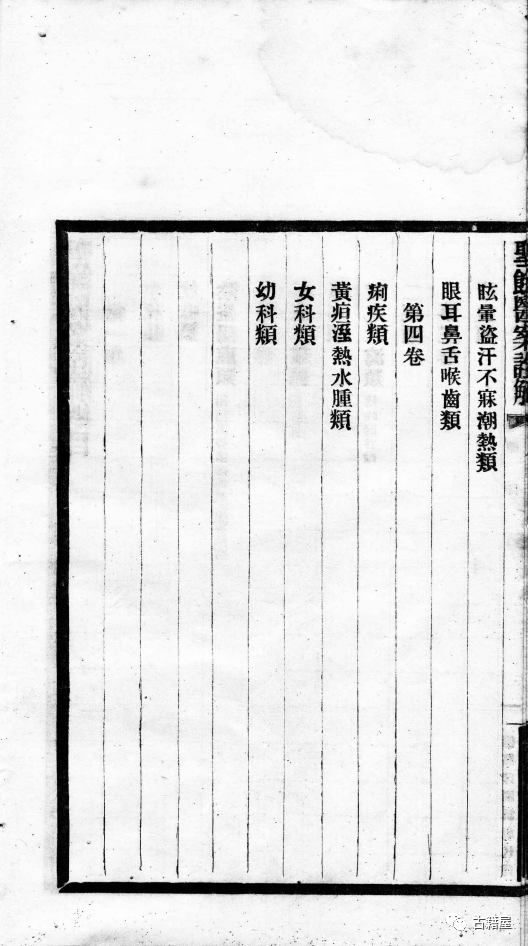 醫案註解
眩暈盜汗不寐潮熱類
眼耳鼻舌喉齒類
第四卷
痢疾類
黃疸溼熱水腫類
女科類
幼科類
古籍屋